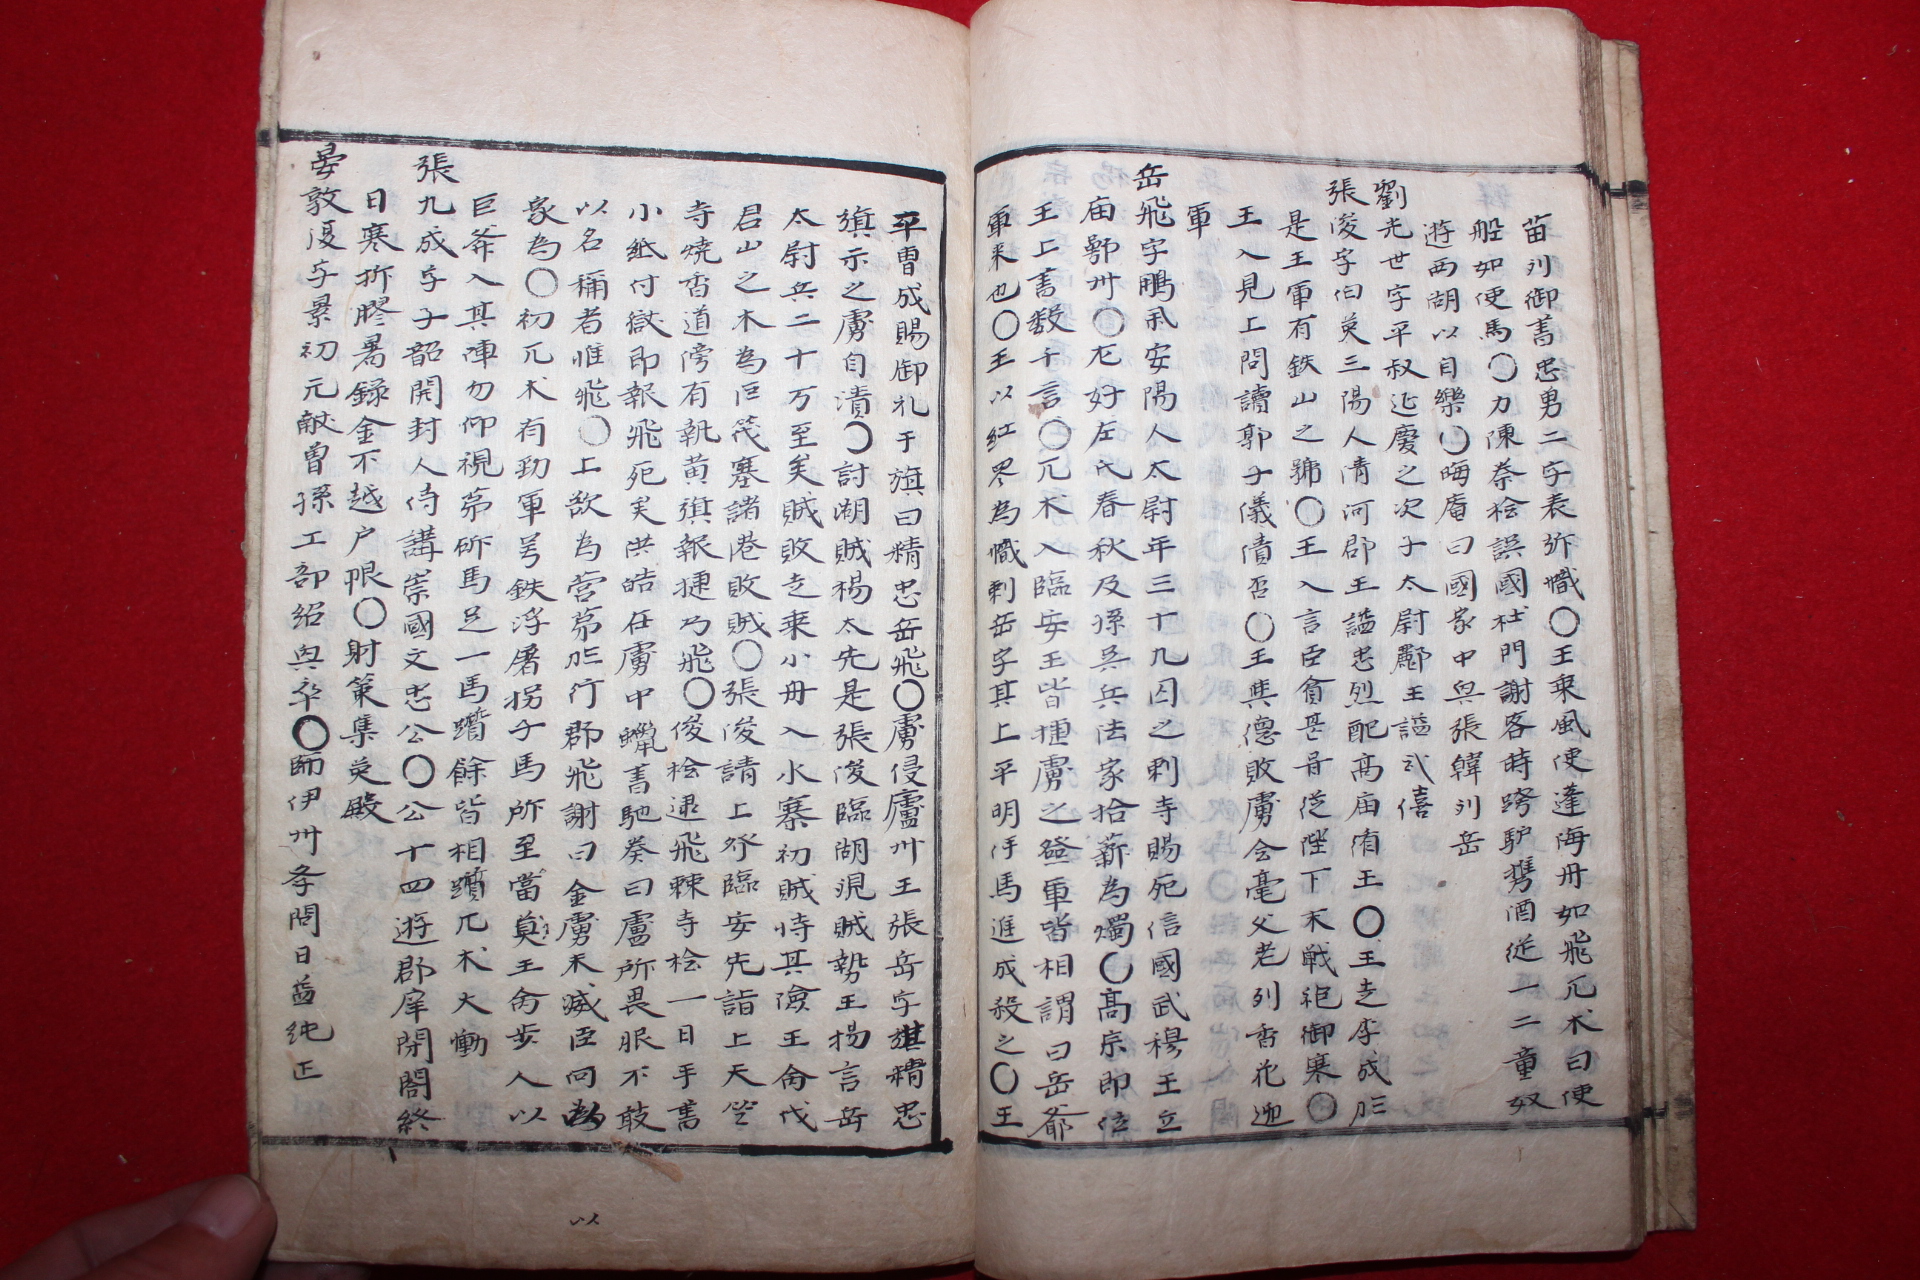 苗刘御書忠勇二字表旂幟〇王乗風使蓬海舟如飛兀术曰使
舩如使馬〇力陳秦桧誤國杜門謝客時跨馿携酒従一二童奴
遊西湖以自樂〇晦庵曰國家中兴張韓刘岳
劉光世字平叔延慶之次子太尉鄜王謚武僖
張俊字伯英三陽人清河郡王謚忠烈配高庙侑王〇王走李成
是王軍有鉄山之號〇王入言臣貧甚昔従陛下末戦袍御寒〇
王入見上問讀郭子儀傳否〇王兴德敗虜会毫父老列香花迎
軍
岳飛字鵬举安陽人太尉年三十九囚之刺寺賜死信國武穆王立
庙鄂州〇尤好左氏春秋及孫吳兵法家拾薪為燭〇高宗即位
王上書数千言〇兀术入臨安王皆捷虜之簽軍皆相謂曰岳爺
軍来也〇王以紅罗為幟刺岳字其上平明仔馬進成殺之〇王
平曺成賜御札于旗曰精忠岳飛〇虜侵廬州王張岳字旗精忠
旗示之虜自潰〇討湖賊楊太先是張俊臨湖覌賊勢王揚言岳
太尉兵二十万至矣賊敗走乗小舟入水寨初賊恃其險王命伐
君山之木為巨筏塞諸港敗賊〇張俊請上祭臨安先詣上天竺
寺燒香道傍有執黄旗報捷乃飛〇俊桧逮飛棘寺桧一日手書
小紙付獄即報飛死矣洪皓在虜中蠟書馳奏曰虜所畏服不敢
以名稱者惟飛〇上欲為营第行郡飛謝曰金虜未滅臣何
家為〇初兀术有勁軍号鉄浮屠拐子馬所至當莫王命步人以
巨斧入其陣勿仰視第斫馬足一馬躓餘皆相躓兀术大慟
張九成字子韶開封人侍講崇國文忠公〇公十四遊郡庠閉閤終
日寒折膠暑鑠金不越户限〇射策集英殿
晏敦復字景初元献曽孫工部紹兴卒〇師伊川李問日益純正
以